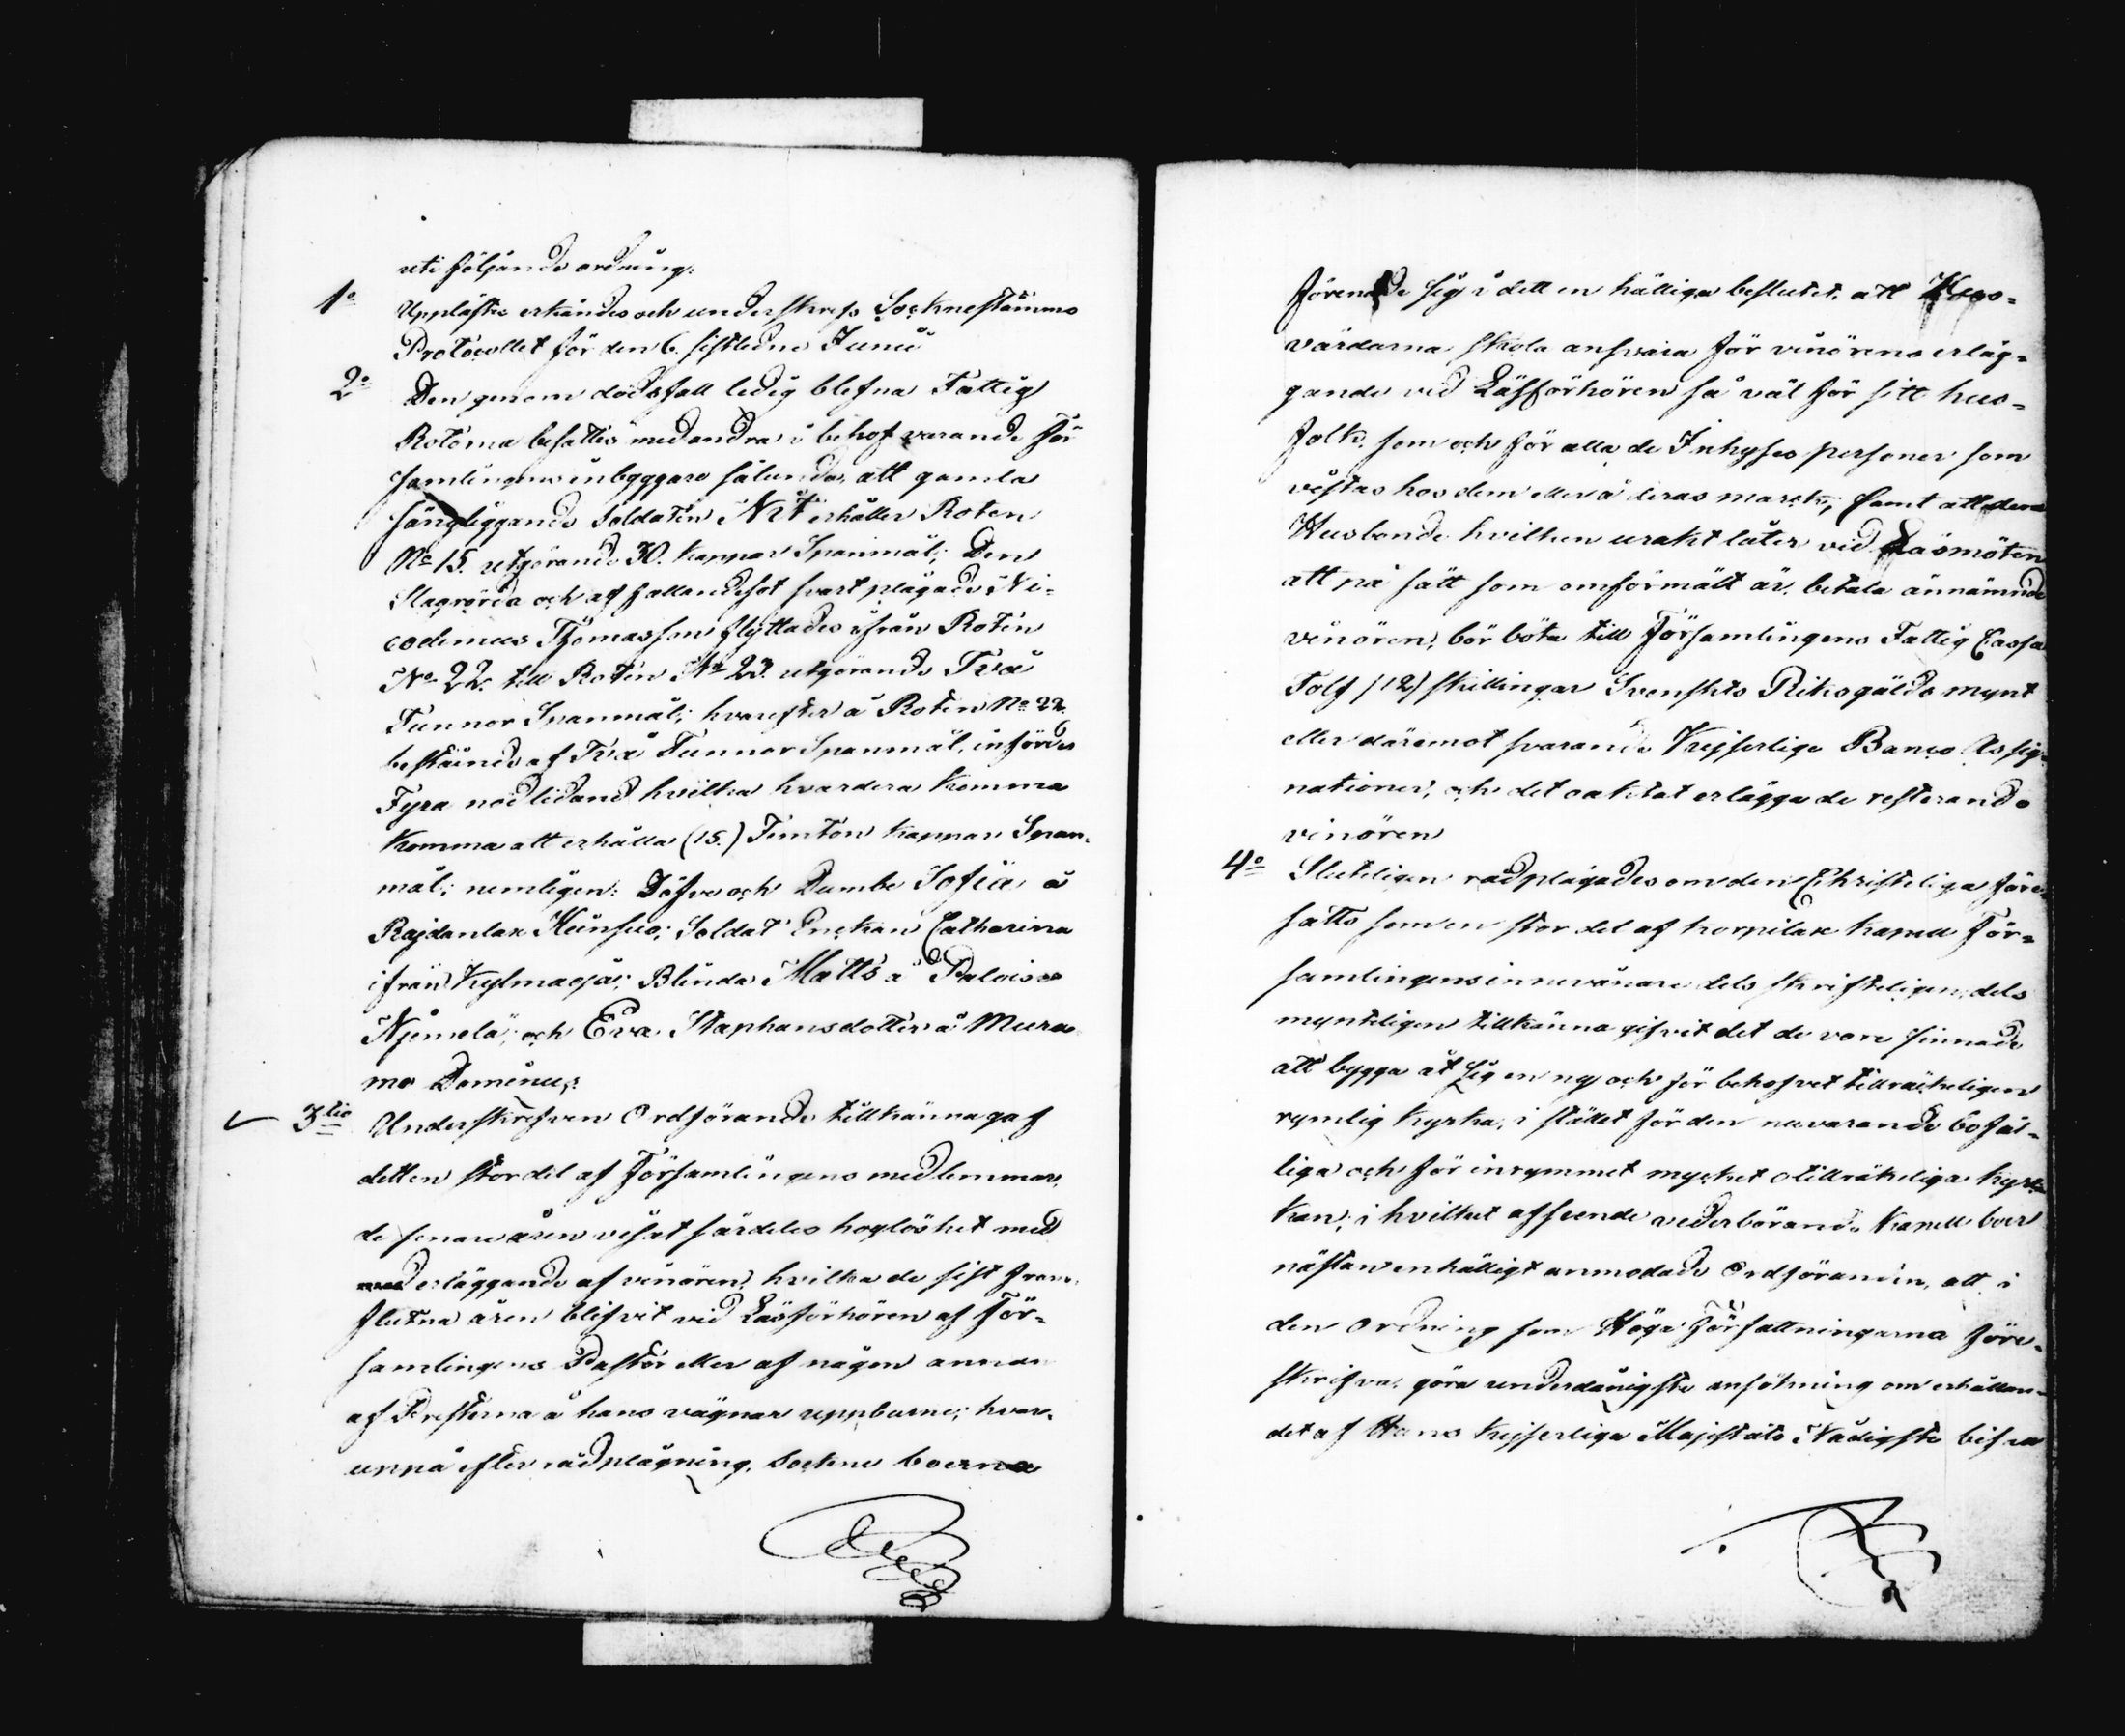 uti följande ordning:
1o Upplästes erkändes och underskrefs Socknestämmo
Protocollet för den 6. sistledne Junii
2o Den genom dödsfall ledig blefna Fattig
Roterna besattes med andra i behof varande För
samlingens inbyggare sålunda, att gamla
sängliggande soldaten Nit erhåller Roten
No 15. utgörande 30. kappar Spanmål; Den
Slagrörda och af fallandesot svart plågade Ni-
codemus Thomasson flyttades ifrån Roten
No 22. till Roten No 23. utgörande Två
Tunnor Spanmål; hvarefter å Roten No 22.
bestående af Två Tunnor Spanmål, infördes
Fyra nödlidand hvilka hvardera komma
komma att erhålla (15.) Femton kappar Span-
mål; nemligen: Döfve och Dumbe Sofia å
Rajdanlax Heinsuo; Soldat Enckan Catharina
ifrån Kylmäoja; Blinda Matts å Palois
Njemelä; och Eva Staphansdotter å Mura
mo Dominus;
3tio Underskrefven Ordförande tillkännagaf
dett en stor del af Församlingens medlemmar
de senare åren visat särdeles hoglöshet med
med erläggande af vinören, hvilka de sist fram-
flutna åren blifvit vid Läsförhören af För-
samlingens Pastor eller af någon annan
af Presterna å hans vägnar uppburne; hvar-
uppå efter rådplägning, Sockne boerna
förenade sig i dett en hälliga beslutet, att Hus-
värdarna skola ansvara för vinörens erläg-
gande vid Läsförhören så väl för sitt hus-
folk, som och för alla de Inhyses personer som
vistas hos dem eller å deras mark; samt att den
Husbonde hvilken uraktlåter vid Läsmöten
att på sätt som omförmält är, betala ännämnde
vinören, bör böta till Församlingens Fattig Cassa
Tolf /12/ skillingar Svenskts Riksgälds mynt
eller däremot svarande Kejserliga Banco Assig-
nationer, och det oaktat erlägga de resterande
vinören
4o Sluteligen rådplägades om den Christeliga före
satts som en stor del af korpilax Kapell För-
samlingens innevånare dels skrifteligen, dels
mynteligen tillkänna gifvit det de vore sinnade
att bygga åt sig en ny och för behofvet tillräckeligen
rymlig kyrka, i stället för den nuvarande bofäl-
liga och för inrymmet mycket otillräkeliga kyr
kan; i hvilket afseende vederbörande Kapell boer
nästan enhälligt anmodade Ordföranden, att i
den ordning som Höga Författningarna före-
skrifva, göra underdånigste ansökning om erhållan-
det af Hans Kejserliga Majestäts Nådigste bifall